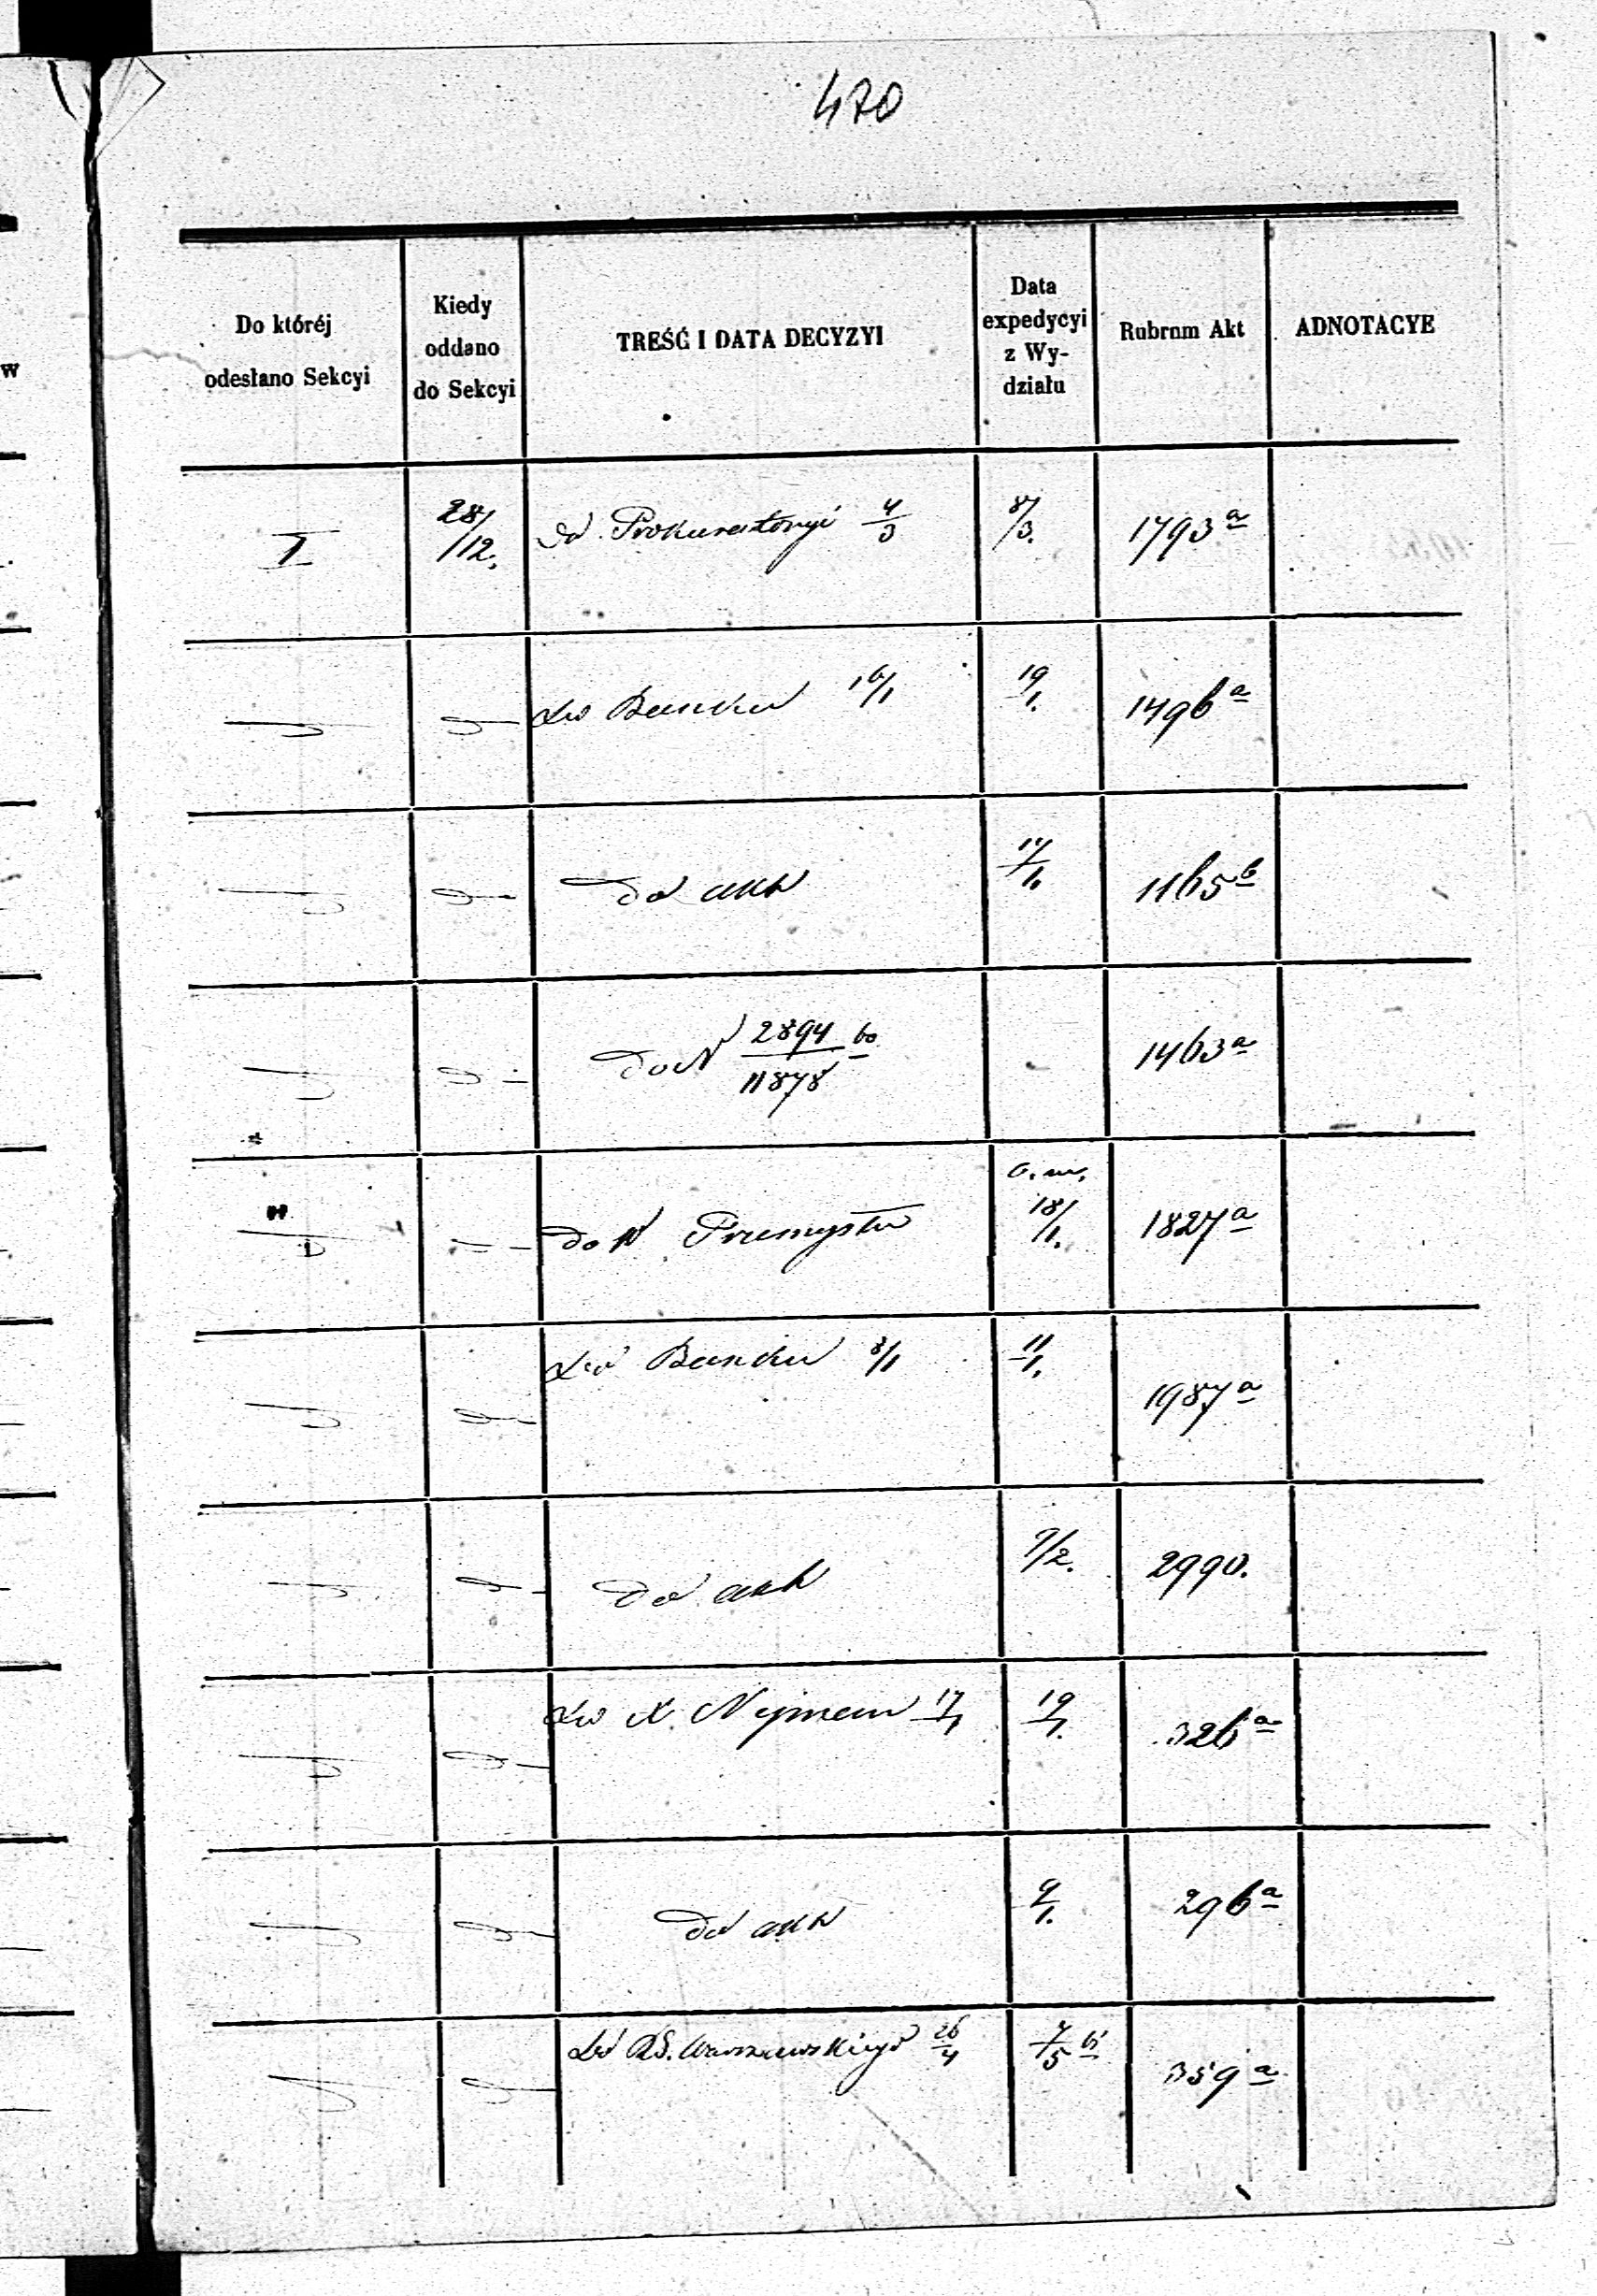 470
Do któréj
odesłano Sekcyi
Kiedy
oddano
do Sekcyi
TREŚĆ I DATA DECYZYI
Data
expedycyi
z Wy-
działu
Rubrum Akt
ADNOTACYE
I
28/12.
do Prokuratoryi 4/3
8/3.
1793 a
do Banku 16/1
19/1.
1496 a
do akt
1165 b
do N 2894/11878 60
1463 a
do N Przemysłu
18/1.
1827 a
do Banku 8/1
11/1.
1987 a
do akt
9/2.
2990.
do N. Nymeru 17/1
19/1.
326 a
do akt
9/1.
296 a
do RS. Warszawskiego 26/4
7/5
359 a
w